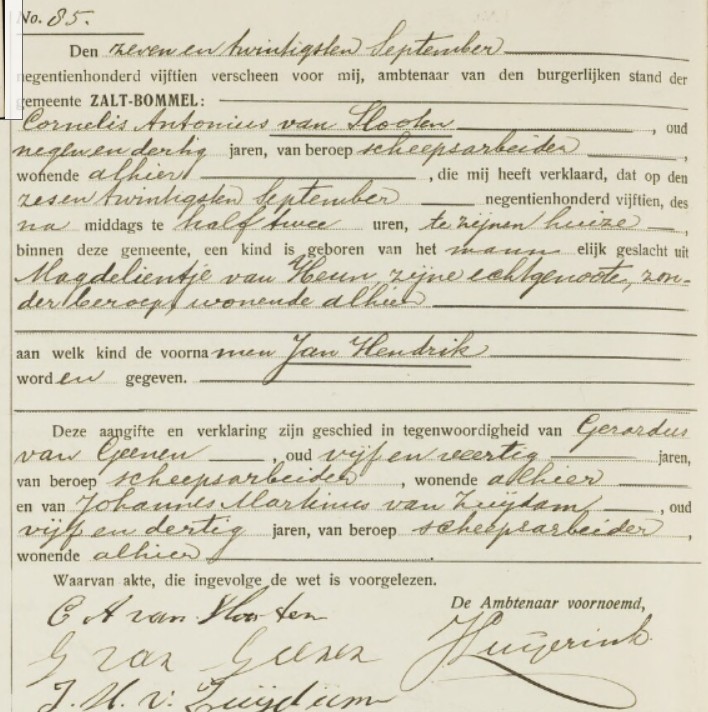 No. 85.
Den zeven en twintigsten September
negentienhonderd vijftien verscheen voor mij, ambtenaar van den burgerlijken stand der
gemeente ZALT-BOMMEL:
Cornelis Antonius van Slooten, oud
negen en dertig jaren, van beroep scheepsarbeider,
wonende alhier, die mij heeft verklaard, dat op den
zes en twintigsten September negentienhonderd vijftien, des
na middags te half twee uren, te zijnen huize,
binnen deze gemeente, een kind is geboren van het mann elijk geslacht uit
Magdelientje van Heun, zijne echtgenoote, zon-
der beroep, wonende alhier
aan welk kind de voornamen Jan Hendrik
worden gegeven.
Deze aangifte en verklaring zijn geschied in tegenwoordigheid van Gerardus
van Geenen, oud vijf en veertig jaren,
van beroep scheepsarbeider, wonende alhier
en van Johannes Martinus van Zuijdam, oud
vijf en dertig jaren, van beroep scheepsarbeider,
wonende alhier.
Waarvan akte, die ingevolge de wet is voorgelezen.
De Ambtenaar voornoemd,
C A van Slooten
G van Geenen
J. M. v. Zuijdam